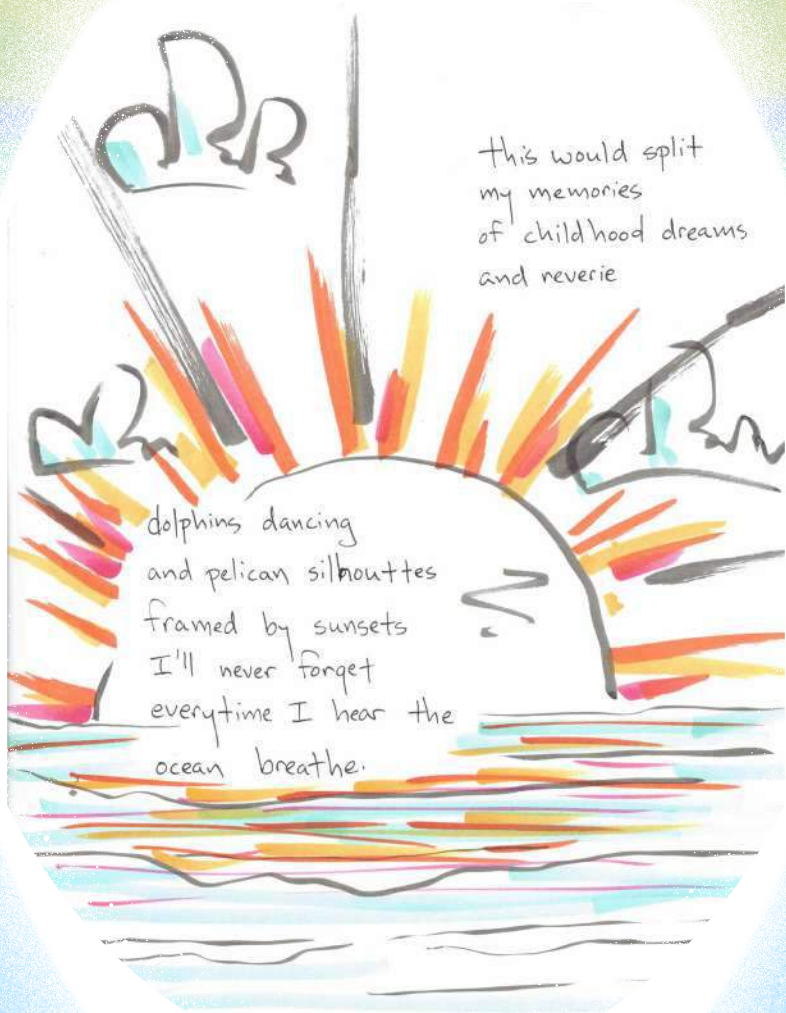 this would split
my memories
of childhood dreams
and reverie
dolphins dancing
and pelican silhouttes
framed by sunsets
I'll never forget
everytime I hear the
ocean breathe.